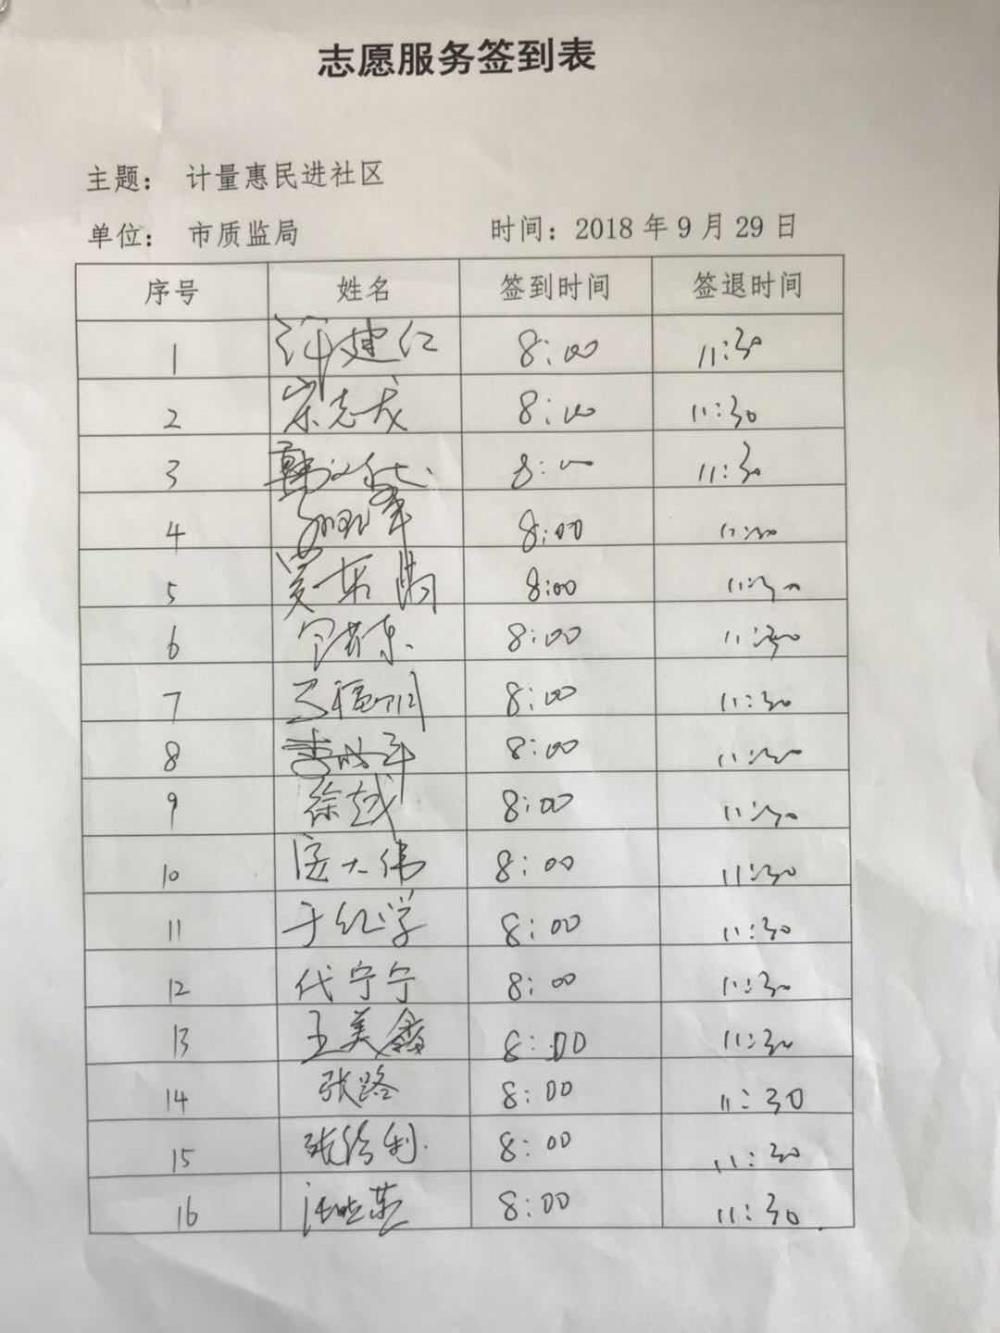 志愿服务签到表
主题： 计量惠民进社区
单位： 市质监局 时间：2018年9月29日
序号 姓名 签到时间 签退时间
1 许建红 8:00 11:30
2 宋志成 8:00 11:30
3 8:00 11:30
4 8:00 11:30
5 8:00 11:30
6 8:00 11:30
7 8:00 11:30
8 8:00 11:30
9 徐越 8:00 11:30
10 大伟 8:00 11:30
11 于红学 8:00 11:30
12 代宁宁 8:00 11:30
13 王美鑫 8:00 11:30
14 张路 8:00 11:30
15 张 利 8:00 11:30
16 8:00 11:30